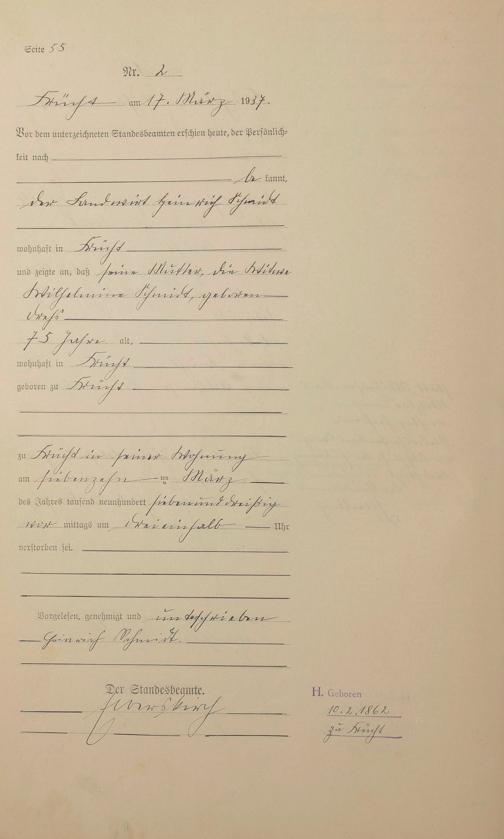 Seite 55
Nr. 2
Frücht am 17. März 1937.
Vor dem unterzeichneten Standesbeamten erschien heute, der Persönlich-
keit nach
be kannt,
der Landwirt Heinrich Schmidt
wohnhaft in Frücht
und zeigte an, daß seine Mutter, die Witwe
Wilhelmine Schmidt, geboren
75 Jahre alt,
wohnhaft in Frücht
geboren zu Frücht
zu Frücht in seiner Wohnung
am siebenzehn ten März
des Jahres tausend neunhundert siebenunddreißig
vor mittags um dreieinhalb Uhr
verstorben sei.
Vorgelesen, genehmigt und unterschrieben
Heinrich Schmidt.
Der Standesbeamte.
H. Geboren
10.2.1862
zu Frücht